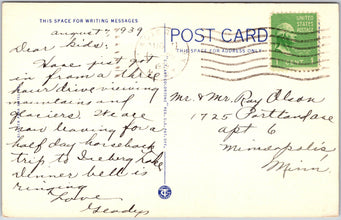 THIS SPACE FOR WRITING MESSAGES
August 7, 1939
Dear Kids:
Have just got
in from a three
hour drive viewing
mountains and
glaciers. We are
now leaving for a
half day horseback
trip to Iceberg Lake
Dinner bell is
ringing
Love
Gladys
POST CARD
THIS SPACE FOR ADDRESS ONLY
UNITED
STATES
POSTAGE
Mr. & Mrs. Ray Olson
1725 Portland ave
apt 6
Minneapolis
Minn.